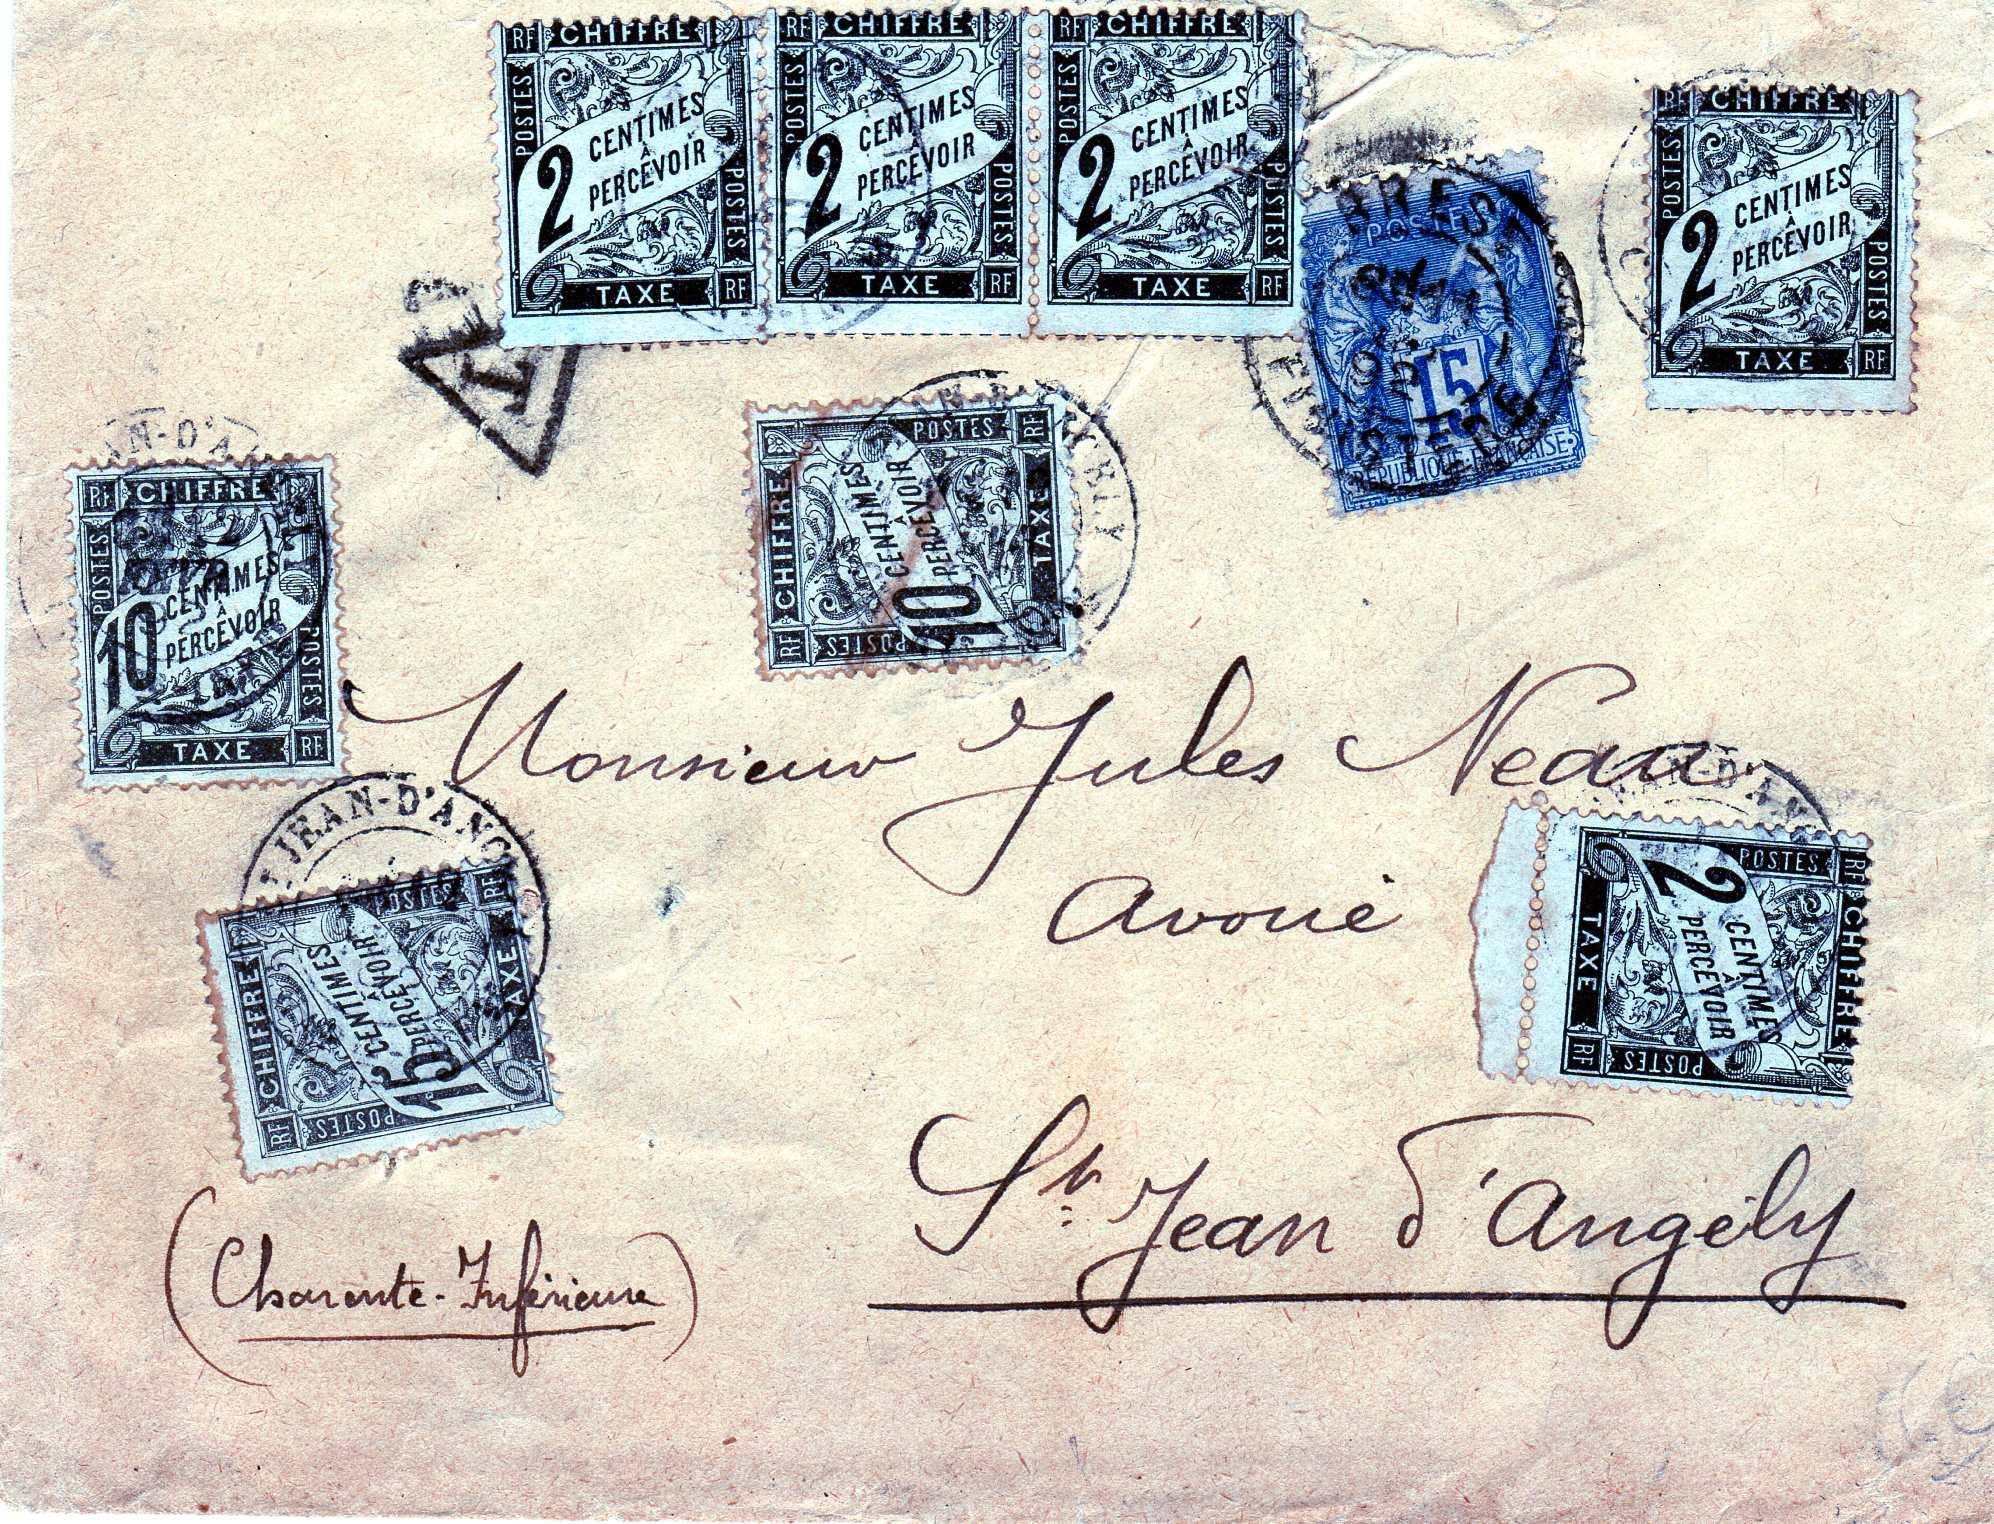 RF CHIFFRE
POSTES
2 CENTIMES
À
PERCEVOIR
POSTES
TAXE RF
RF CHIFFRE
POSTES
2 CENTIMES
À
PERCEVOIR
POSTES
TAXE
RF CHIFFRE
POSTES
2 CENTIMES
À
PERCEVOIR
POSTES
TAXE RF
RF CHIFFRE
POSTES
2 CENTIMES
À
PERCEVOIR
POSTES
TAXE RF
T
BREST
FINISTERE
15
REPUBLIQUE FRANÇAISE
JEAN-D'ANGELY
RF CHIFFRE
POSTES
10 CENTIMES
À
PERCEVOIR
POSTES
TAXE RF
RF CHIFFRE
POSTES
10 CENTIMES
À
PERCEVOIR
POSTES
TAXE RF
Monsieur Jules Neau
avoué
JEAN-D'ANG
RF CHIFFRE
POSTES
15 CENTIMES
À
PERCEVOIR
POSTES
TAXE RF
EAN-D'AN
RF CHIFFRE
POSTES
2 CENTIMES
À
PERCEVOIR
POSTES
TAXE RF
St Jean d'Angély
(Charente-Inférieure)